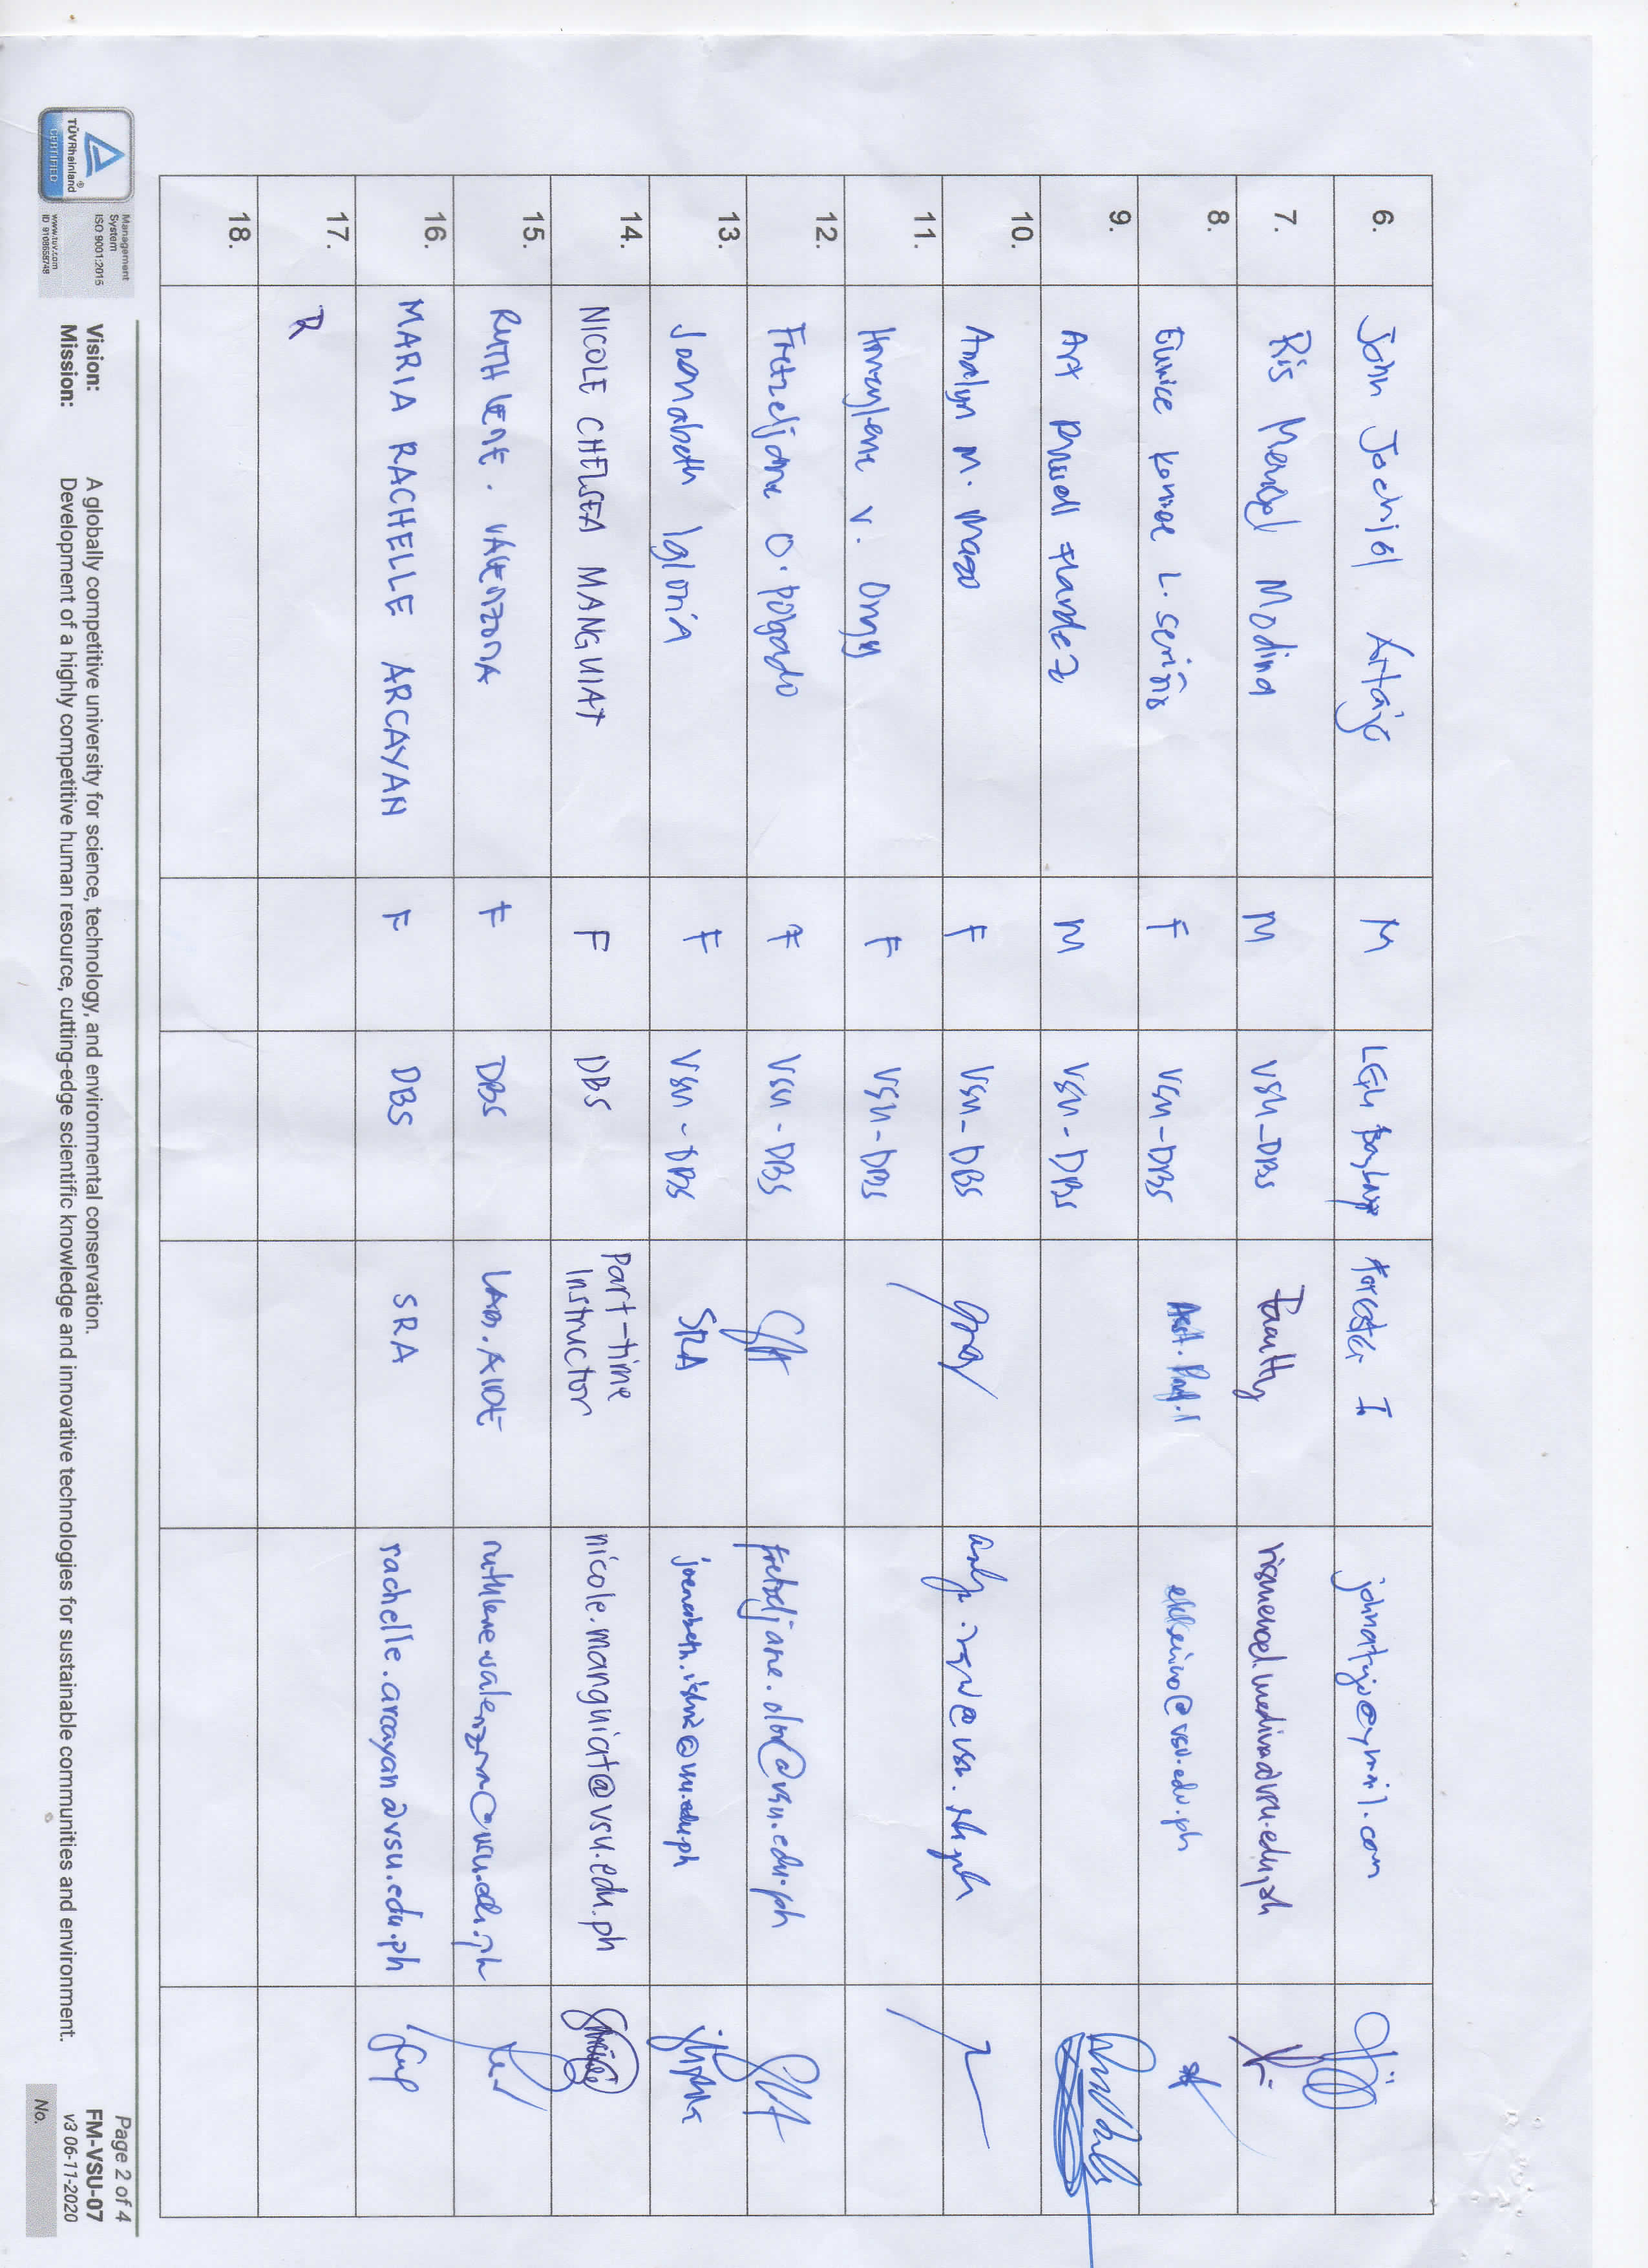 6. John Jochiel Artajo M LGU Baybay Forester I johnatijo@ymail.com
7. Ris Menoel Modina M VSU-DBS Faculty rismenoel.modina@vsu.edu.ph
8. Eunice Kennee L. Seriño F VSU-DBS Asst. Prof. 1 eklserino@vsu.edu.ph
9. Art Russell Flandez M VSU-DBS
10. Analyn M. Mazo F VSU-DBS
11. v. F VSU-DBS
12. Fretzeljane O. Pogado F VSU-DBS
13. Joenabeth Igloria F VSU-DBS SRA
14. NICOLE CHELSEA MANGUIAT F DBS Part-time
Instructor nicole.manguiat@vsu.edu.ph
15. RUTH LENE. VALENZONA F DBS LAB. AIDE ruthlene.valenzona@vsu.edu.ph
16. MARIA RACHELLE ARCAYAN F DBS SRA rachelle.arcayan@vsu.edu.ph
17. R
18.
TÜVRheinland®
CERTIFIED
Management
System
ISO 9001:2015
www.tuv.com
ID 9108658748
Vision: A globally competitive university for science, technology, and environmental conservation.
Mission: Development of a highly competitive human resource, cutting-edge scientific knowledge and innovative technologies for sustainable communities and environment.
Page 2 of 4
FM-VSU-07
v3 06-11-2020
No.